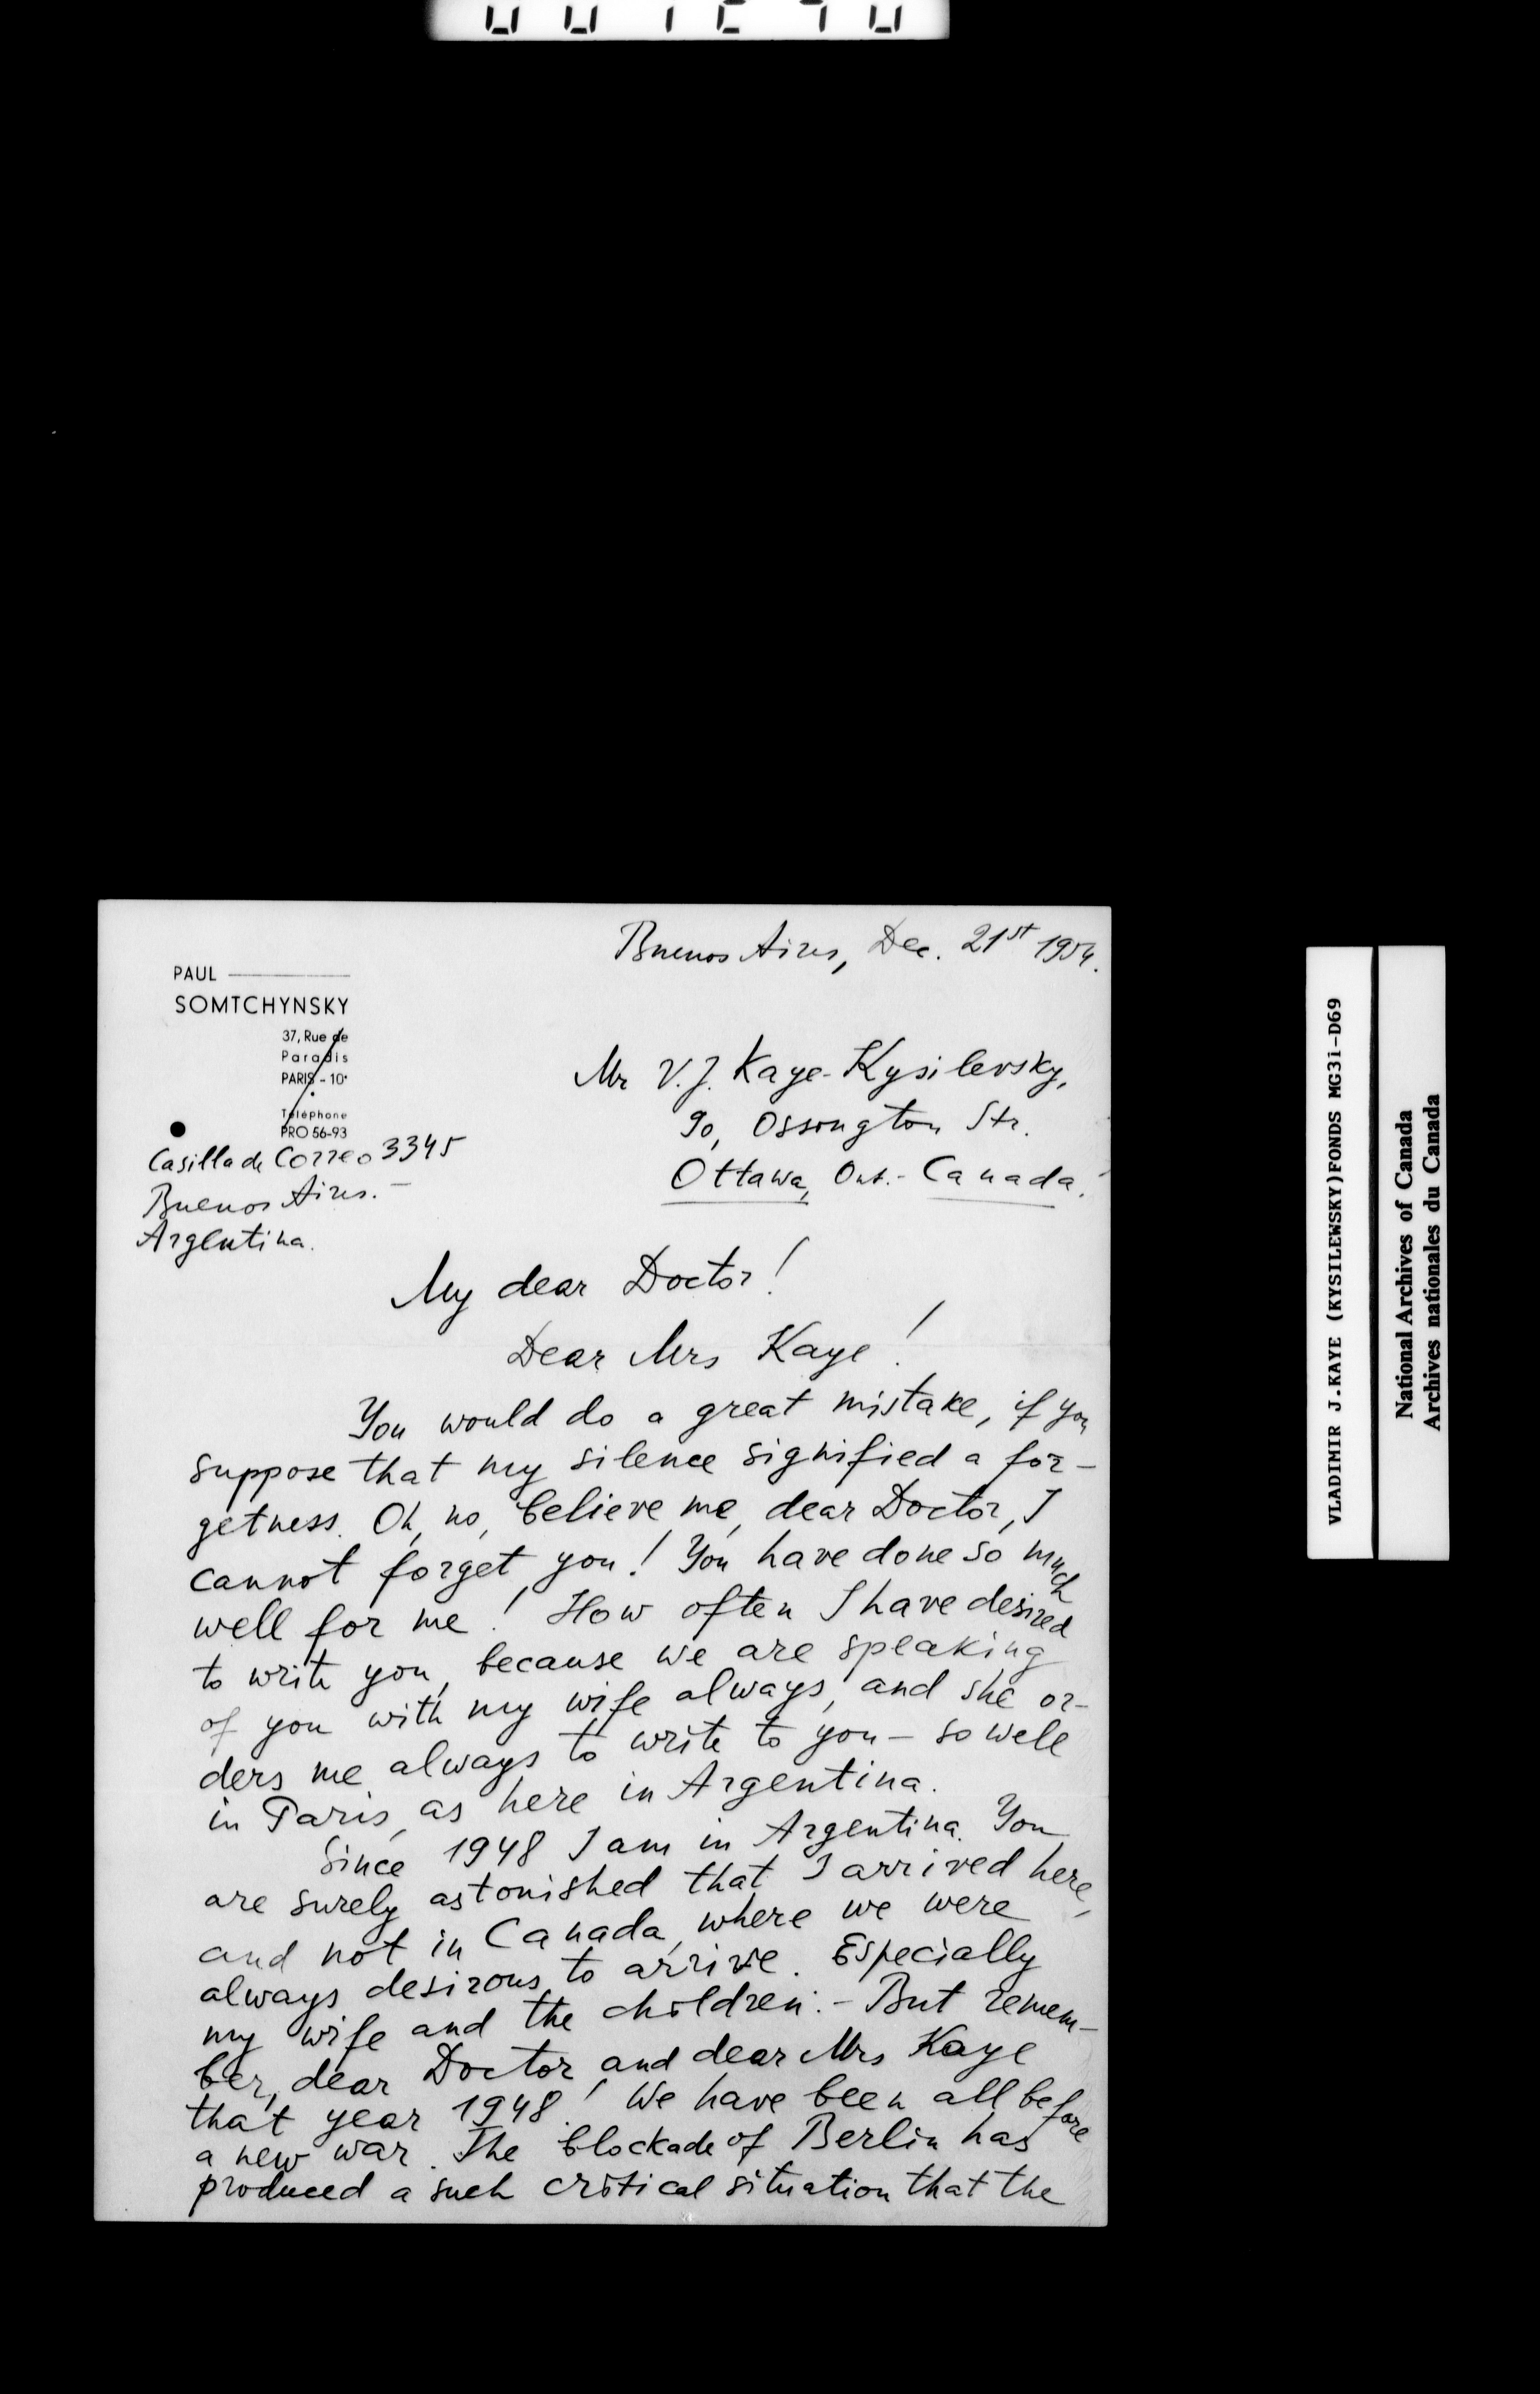 Buenos Aires, Dec. 21st 1954.
PAUL
SOMTCHYNSKY
37, Rue de
Paradis
PARIS - 10e
Téléphone
PRO 56-93
Casilla de Correo 3345
Buenos Aires. -
Argentina.
Mr V. J. Kaye-Kysilevsky,
90, Ossington Str.
Ottawa, Ont.- Canada.
My dear Doctor!
Dear Mrs Kaye!
You would do a great mistake, if you
suppose that my silence signified a for-
getness. Oh, no, believe me, dear Doctor, I
cannot forget you! You have done so much
well for me! How often I have desired
to write you, because we are speaking
of you with my wife always, and she or-
ders me always to write to you - so well
in Paris, as here in Argentina.
Since 1948 I am in Argentina. You
are surely astonished that I arrived here,
and not in Canada, where we were
always desirous to arrive. Especially
my wife and the children. - But remem-
ber, dear Doctor and dear Mrs Kaye
that year 1948! We have been all before
a new war. The blockade of Berlin has
produced a such critical situation that the
VLADIMIR J.KAYE (KYSILEWSKY)FONDS MG31-D69
National Archives of Canada
Archives nationales du Canada